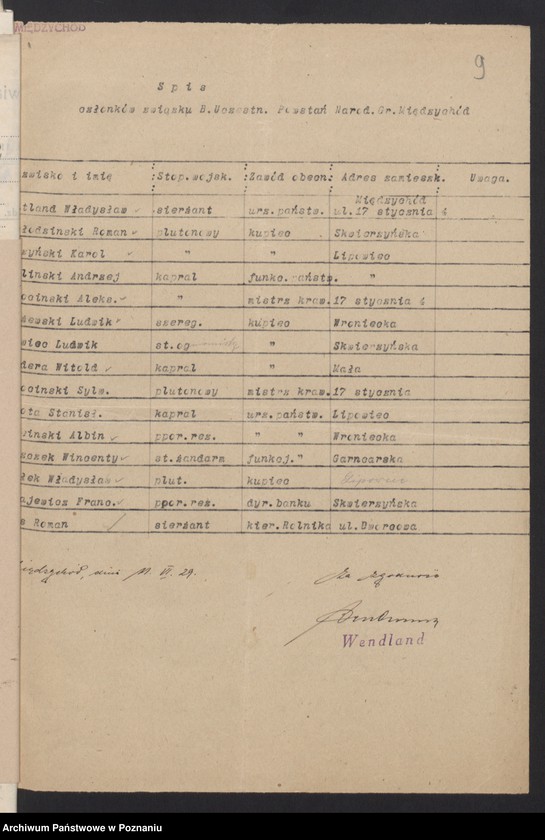 MIĘDZYCHÓD
9
S p i s
członków związku B.Uczestn. Powstań Narod.Gr.Międzychód
zwisko i imię : Stop.wojsk. : Zawód obecn: Adres zamieszk. : Uwaga.
Międzychód
tland Władysław sierżant urz.państw. ul.17 stycznia 4
łodzinski Roman plutonowy kupiec Skwierzyńska
zyński Karol " " Lipowiec
liński Andrzej kapral funkc.państw. "
ociński Aleks. " mistrz kraw. 17 stycznia 4
ewski Ludwik szereg. kupiec Wroniecka
iec Ludwik st.og " Skwierzyńska
dera Witold kapral " Mała
ociński Sylw. plutonowy mistrz kraw. 17 stycznia
ota Stanisł. kapral urz.państw. Lipowiec
iński Albin ppor.rez. " " Wroniecka
oszek Wincenty st.żandarm funkcj." Garncarska
łek Władysław plut. kupiec Lipowiec
ajewicz Franc. ppor.rez. dyr.banku Skwierzyńska
Roman sierżant kier.Rolnika ul.Dworcoza
iędzychód, dnia 11. VI. 29.
Za zgodność
Wendland
Archiwum Państwowe w Poznaniu